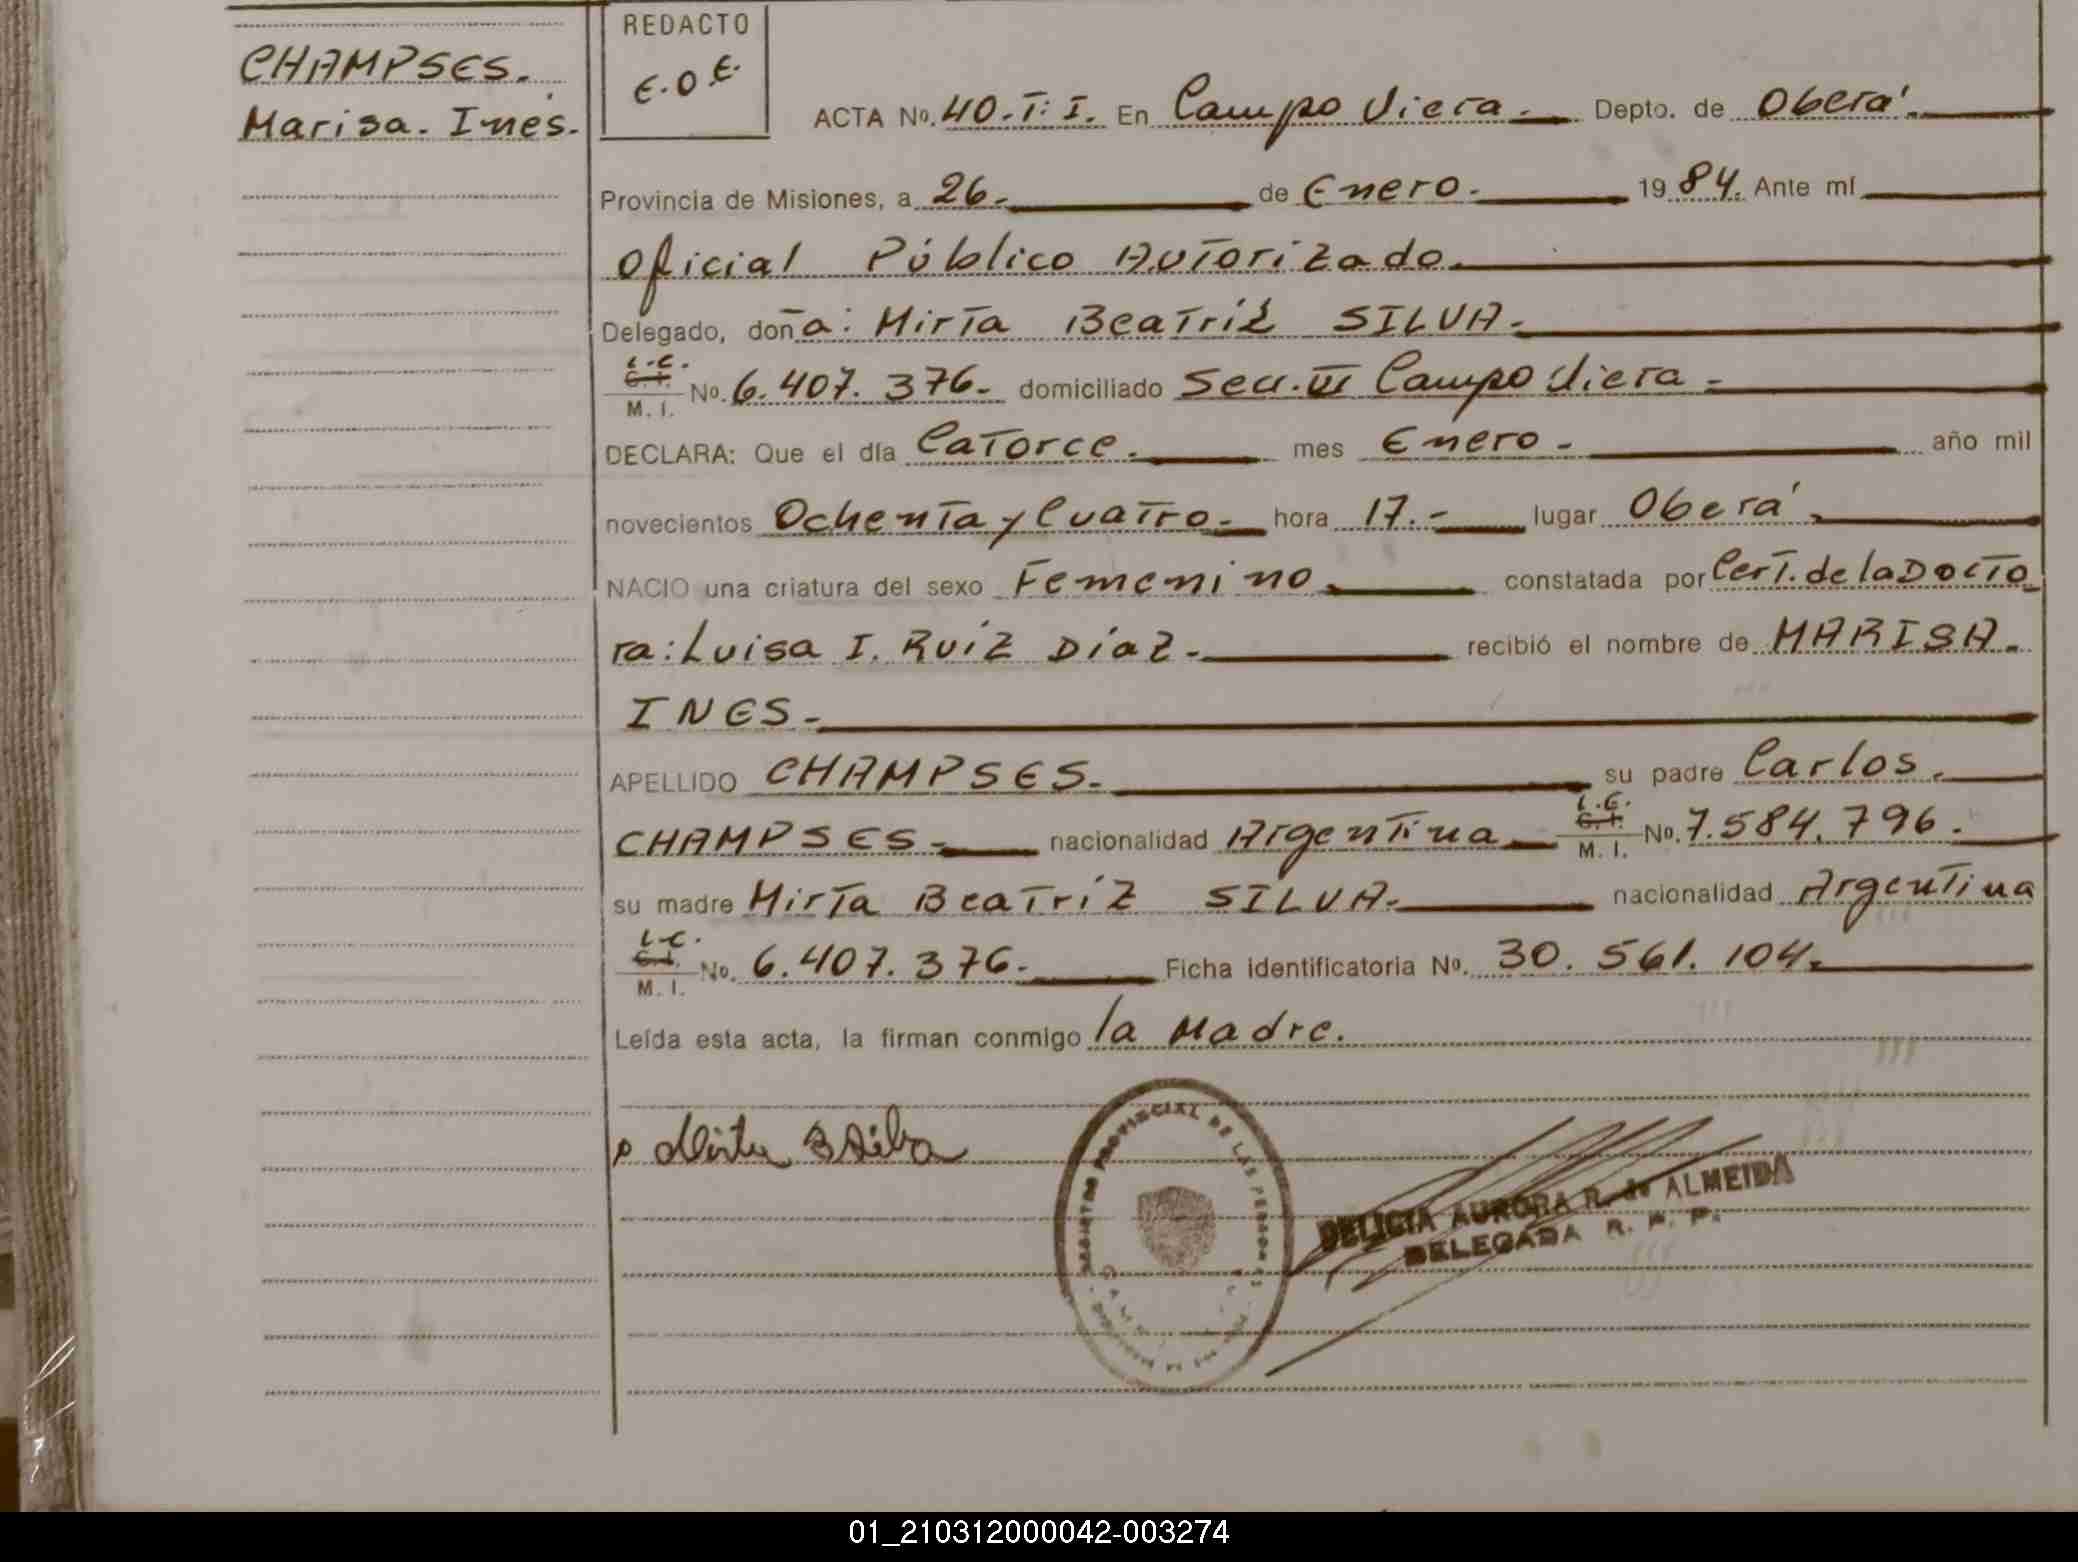 CHAMPSES.
Marisa. Inés.
REDACTO
E.O.E.
ACTA No. 40.T:I. En Campo Viera. Depto. de Oberá.
Provincia de Misiones, a 26. de Enero. 1984. Ante mí
Oficial Público Autorizado.
Delegado, doña: Mirta Beatríz SILVA.
L.C.
C.I.
M. I. No. 6.407.376. domiciliado Secc. VI Campo Viera.
DECLARA: Que el día Catorce. mes Enero. año mil
novecientos Ochenta y Cuatro. hora 17. lugar Oberá.
NACIO una criatura del sexo Femenino. constatada por Cert. de la Docto
ra: Luisa I. Ruíz Díaz. recibió el nombre de MARISA.
INES.
APELLIDO CHAMPSES. su padre Carlos.
CHAMPSES. nacionalidad Argentina L.E. C.I. M. I. No. 7.584.796.
su madre Mirta Beatríz SILVA. nacionalidad Argentina
L.C.
C.I.
M. I. No. 6.407.376. Ficha identificatoria No. 30.561.104.
Leída esta acta, la firman conmigo la Madre.
Mirta B Silva
REGISTRO PROVINCIAL DE LAS PERSONAS
DELICIA AURORA R. de ALMEIDA
DELEGADA R. P. P.
01_210312000042-003274